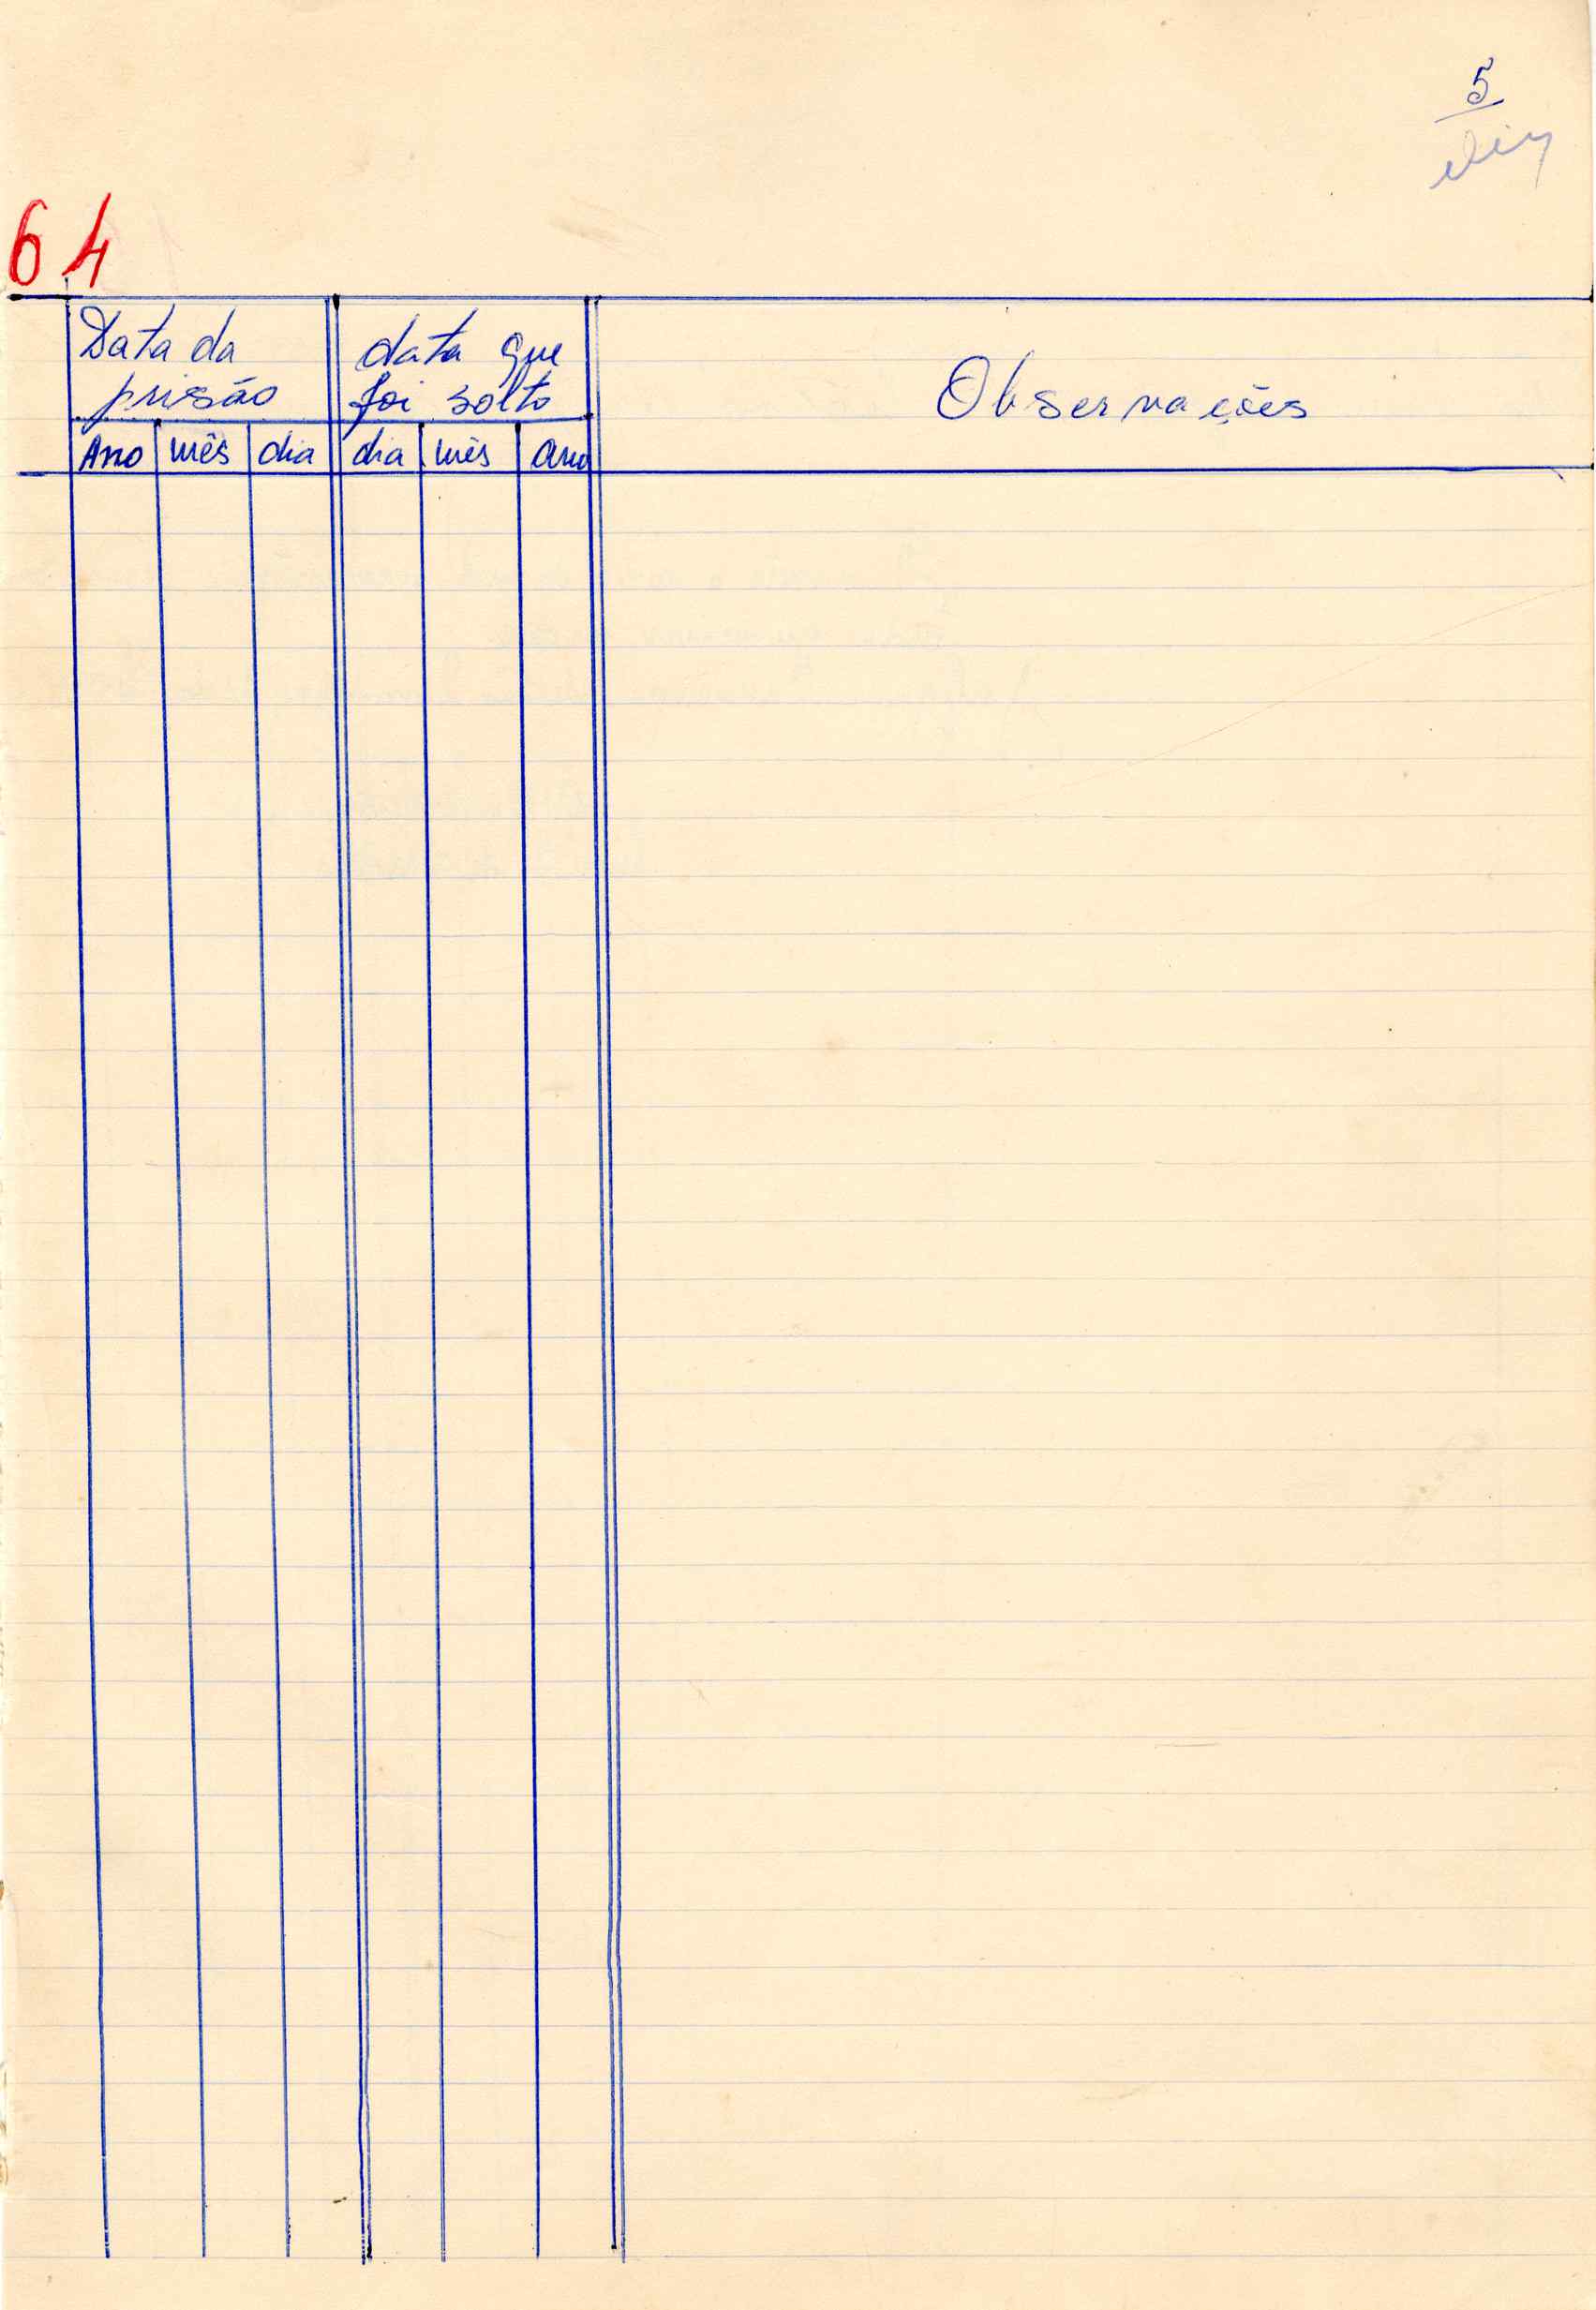 5
64
Data da
prisão
data que
foi solto
Observações
Ano mês dia dia mês ano